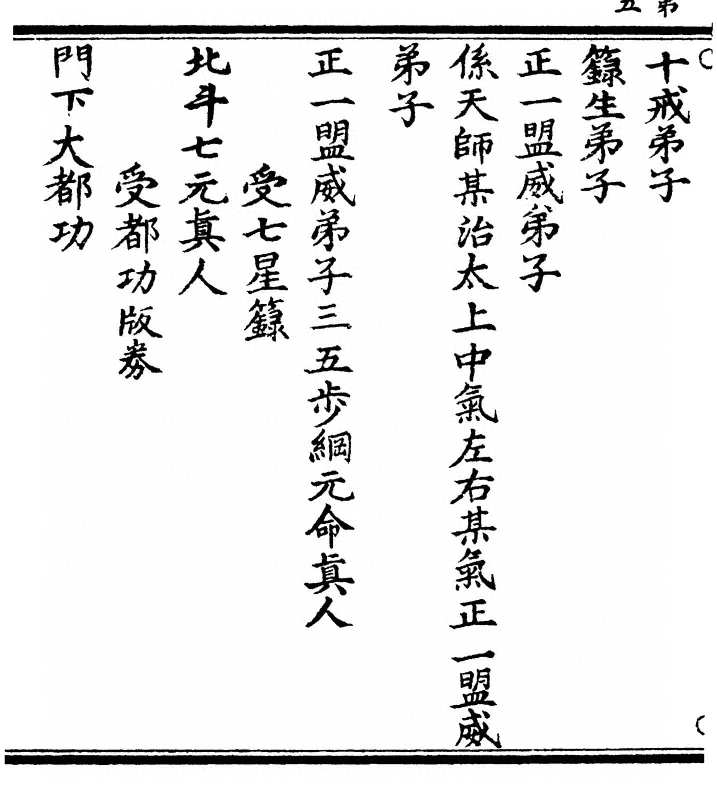 第五
十戒弟子
籙生弟子
正一盟威弟子
係天師某治太上中氣左右某氣正一盟威
弟子
正一盟威弟子三五步綱元命眞人
受七星籙
北斗七元眞人
受都功版券
門下大都功